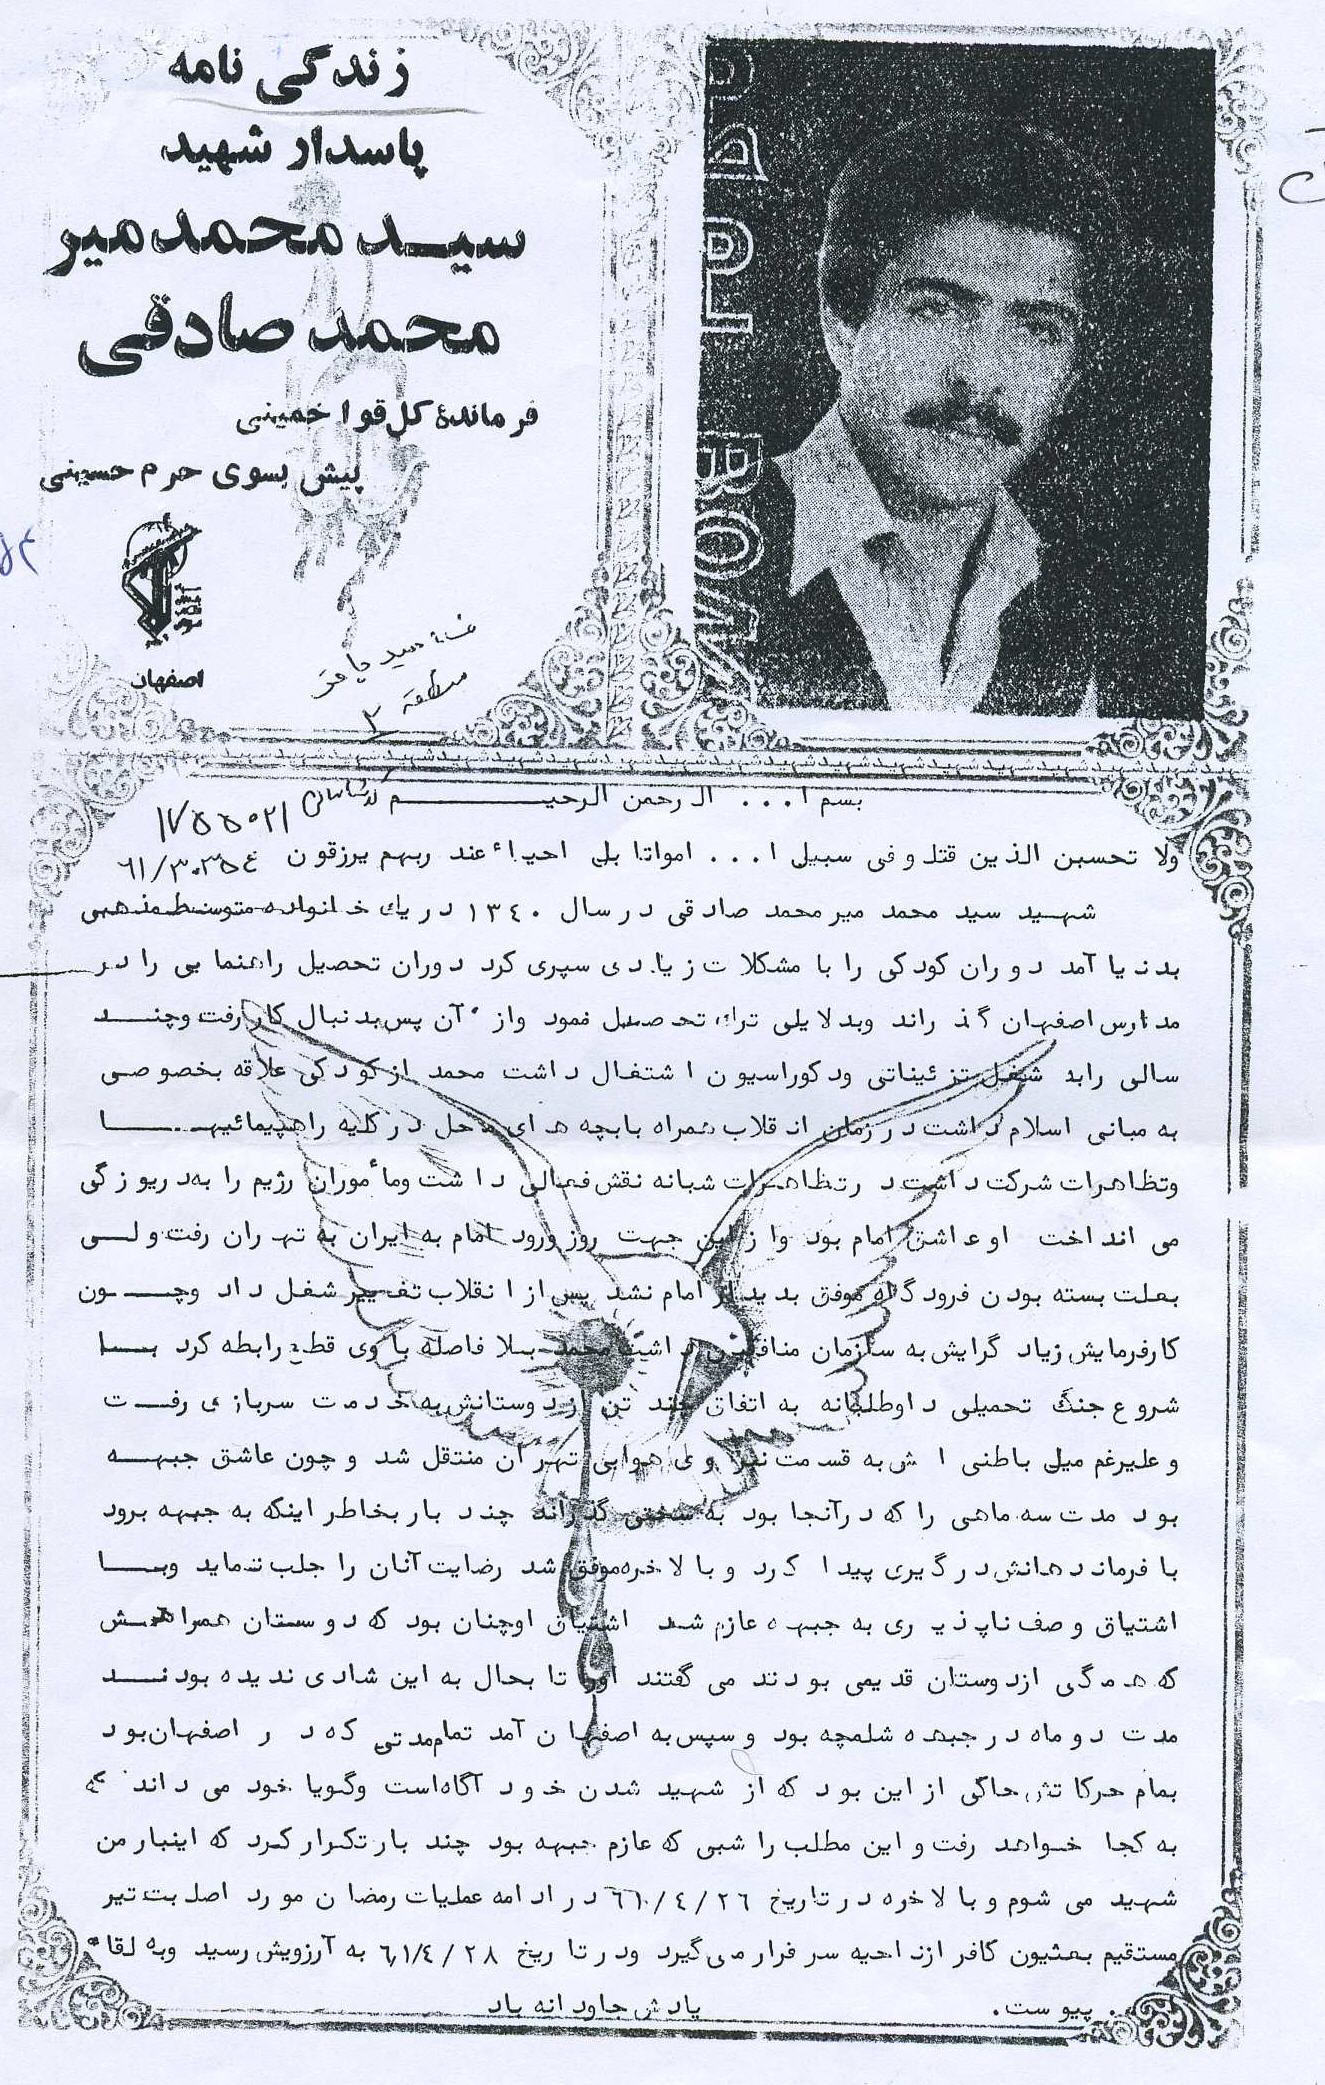 زندگی نامه
پاسدار شهید
سید محمد میر
محمد صادقی
فرماندۀ کل قوا خمینی
پیش بسوی حرم حسینی
اصفهان
سید باقر
منطقه ۲
بسم ا... الرحمن الرحیم
۱۷۵۵۰۲۱
ولا تحسبن الذین قتلو فی سبیل ا... امواتا بل احیاء عند ربهم یرزقون
شهید سید محمد میر محمد صادقی در سال ۱۳٤۰ در یك خانواده متوسط مذهبی
بدنیا آمد دوران کودکی را با مشکلات زیادی سپری کرد دوران تحصیل راهنمایی را در
مدارس اصفهان گذراند وبدلایلی ترك تحصیل نمود واز آن پس بدنبال کار رفت وچند
سالی رابه شغل تزئیناتی ودکوراسیون اشتغال داشت محمد از کودکی علاقه بخصوصی
به مبانی اسلام داشت در زمان انقلاب همراه بابچه های محل در کلیه راهپیمائیها
وتظاهرات شرکت داشت در تظاهرات شبانه نقش فعالی داشت ومأموران رژیم را به دریوزگی
می انداخت او عاشق امام بود واز این جهت روز ورود امام به ایران به تهران رفت ولی
بعلت بسته بودن فرودگاه موفق بدیدار امام نشد پس از انقلاب تغییر شغل داد وچون
کارفرمایش زیاد گرایش به سازمان منافقین داشت محمد بلا فاصله باوی قطع رابطه کرد با
شروع جنگ تحمیلی داوطلبانه به اتفاق چند تن از دوستانش به خدمت سربازی رفت
و علیرغم میل باطنی اش به قسمت نیروی هوایی تهران منتقل شد و چون عاشق جبهه
بود مدت سه ماهی را که درآنجا بود به سختی گذراند چند بار بخاطر اینکه به جبهه برود
با فرماندهانش درگیری پیدا کرد و بالاخره موفق شد رضایت آنان را جلب نماید وبا
اشتیاق وصف ناپذیری به جبهه عازم شد اشتیاق اوچنان بود که دوستان همراهش
که همگی ازدوستان قدیمی بودند می گفتند اورا تا بحال به این شادی ندیده بودند
مدت دوماه در جبهه شلمچه بود وسپس به اصفهان آمد تمام مدتی که در اصفهان بود
بمام حرکاتش حاکی از این بود که از شهید شدن خود آگاه است وگویا خود می داند که
به کجا خواهد رفت و این مطلب را شبی که عازم جبهه بود چند بار تکرار کرد که اینبار من
شهید می شوم و بالاخره در تاریخ ٦۱/٤/۲٦ در ادامه عملیات رمضان مورد اصابت تیر
مستقیم بعثیون کافر ازناحیه سر قرار می گیرد ودر تاریخ ٦۱/٤/۲۸ به آرزویش رسید وبه لقاء
.. پیوست. یادش جاودانه باد